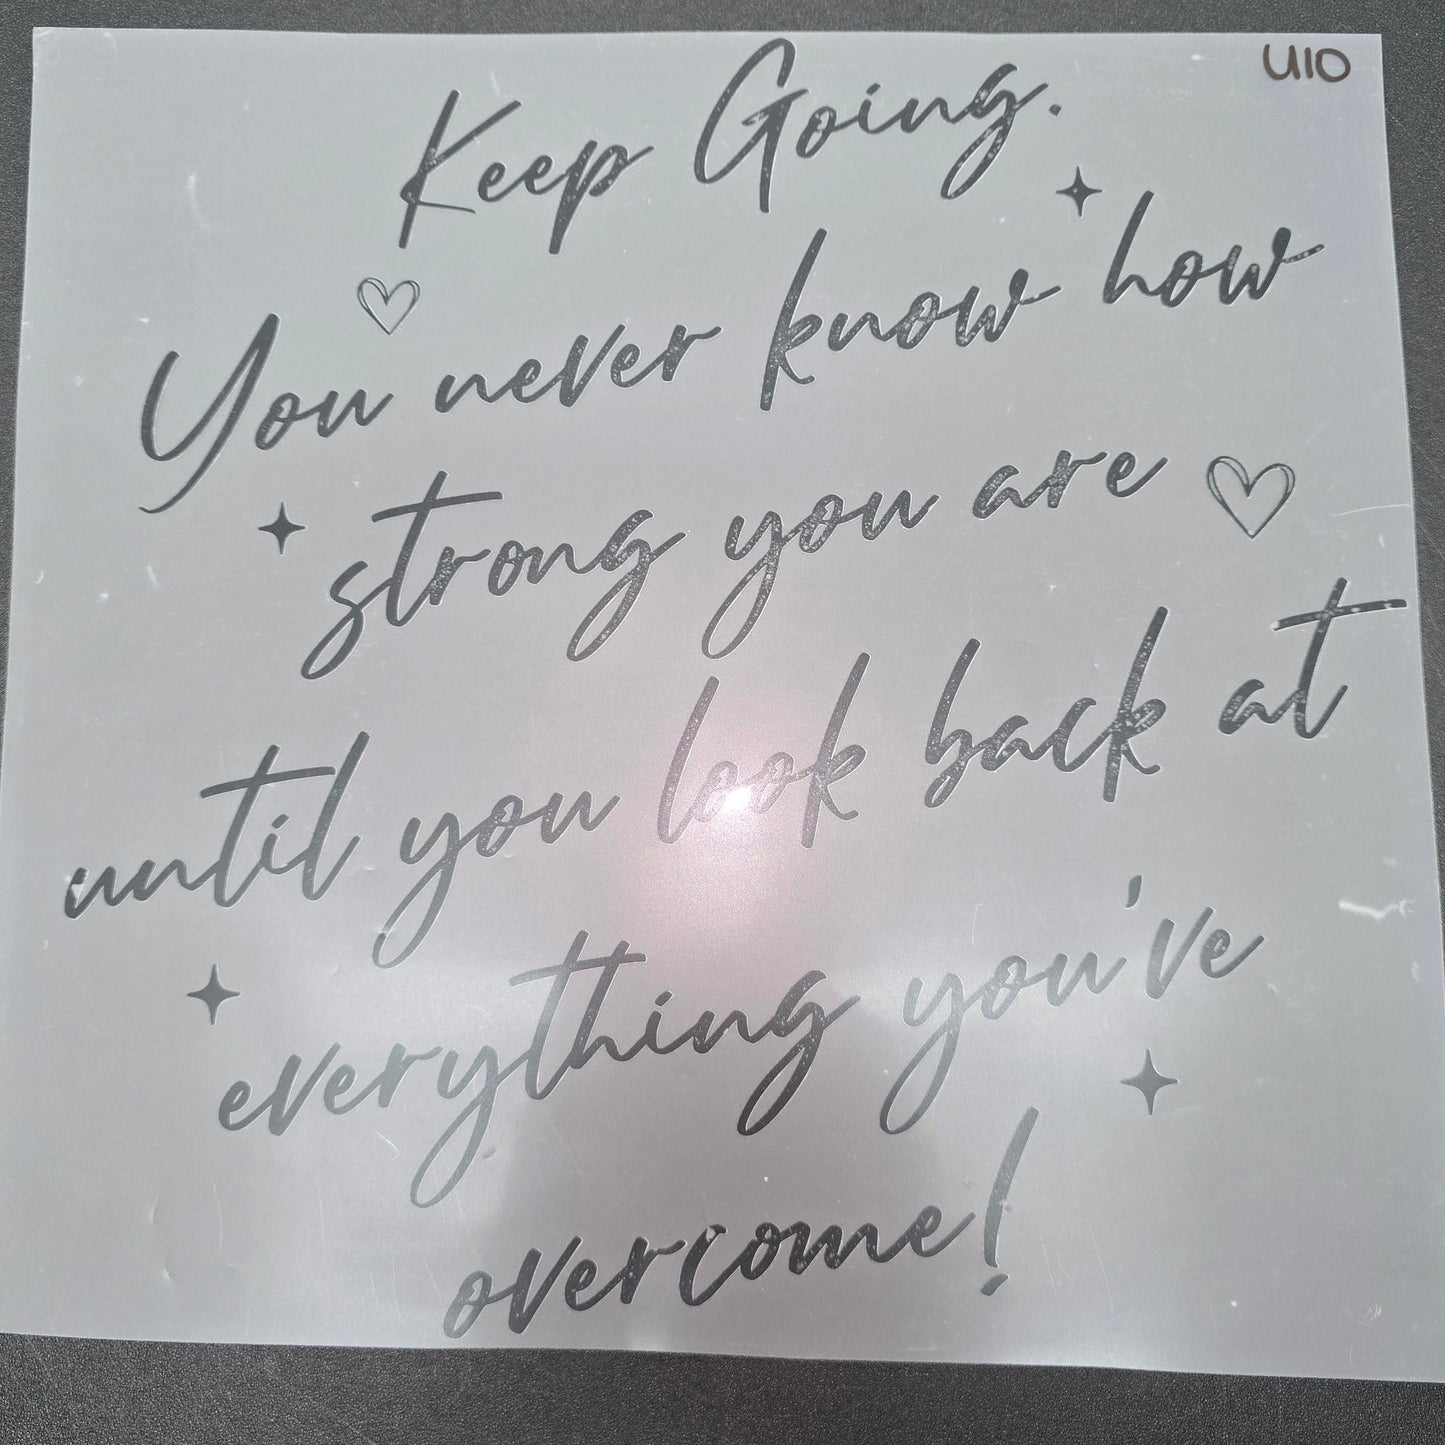 U10
Keep Going.
You never know how
strong you are
until you look back at
everything you've
overcome!